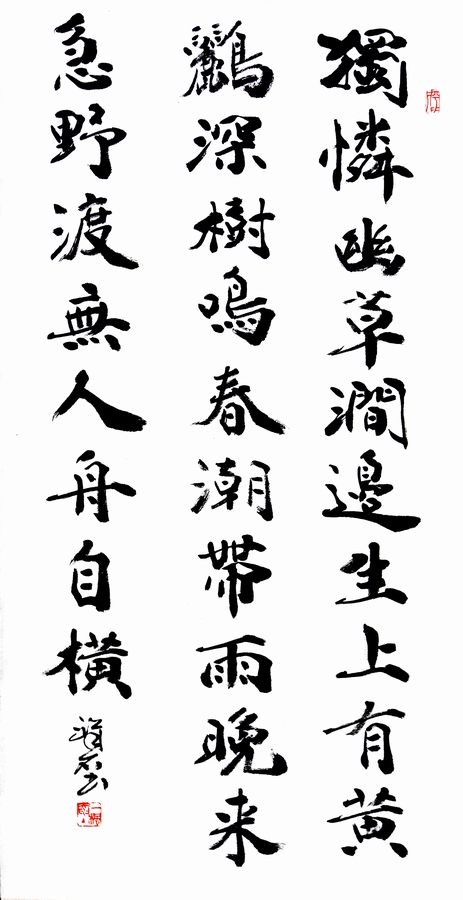 獨憐幽草澗邊生上有黄
鸝深樹鳴春潮帶雨晚来
急野渡無人舟自橫